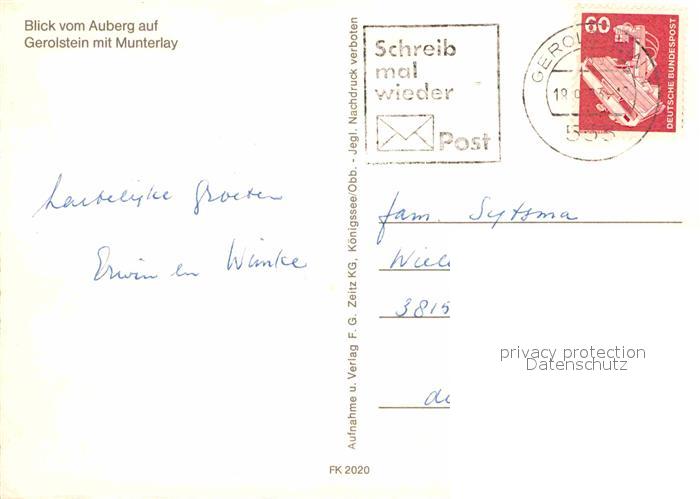 Blick vom Auberg auf
Gerolstein mit Munterlay
hartelijke groeten
Erwin en Wimke
Aufnahme u. Verlag F. G. Zeitz KG, Königssee/Obb. - Jegl. Nachdruck verboten
FK 2020
Schreib
mal
wieder
Post
GEROL
18.9.
555
60
DEUTSCHE BUNDESPOST
fam. Sytsma
Wiel
3815
de
privacy protection
Datenschutz